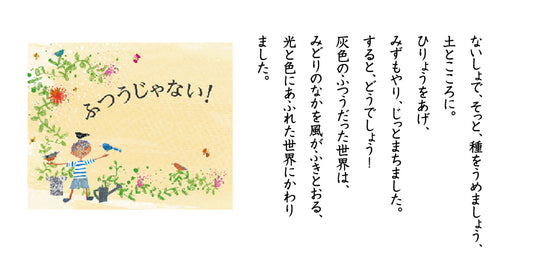 ふつうじゃない!
ないしょで、そっと、種をうめましょう、
土とこころに。
ひりょうをあげ、
みずもやり、じっとまちました。
すると、どうでしょう!
灰色のふつうだった世界は、
みどりのなかを風がふきとおる、
光と色にあふれた世界にかわり
ました。